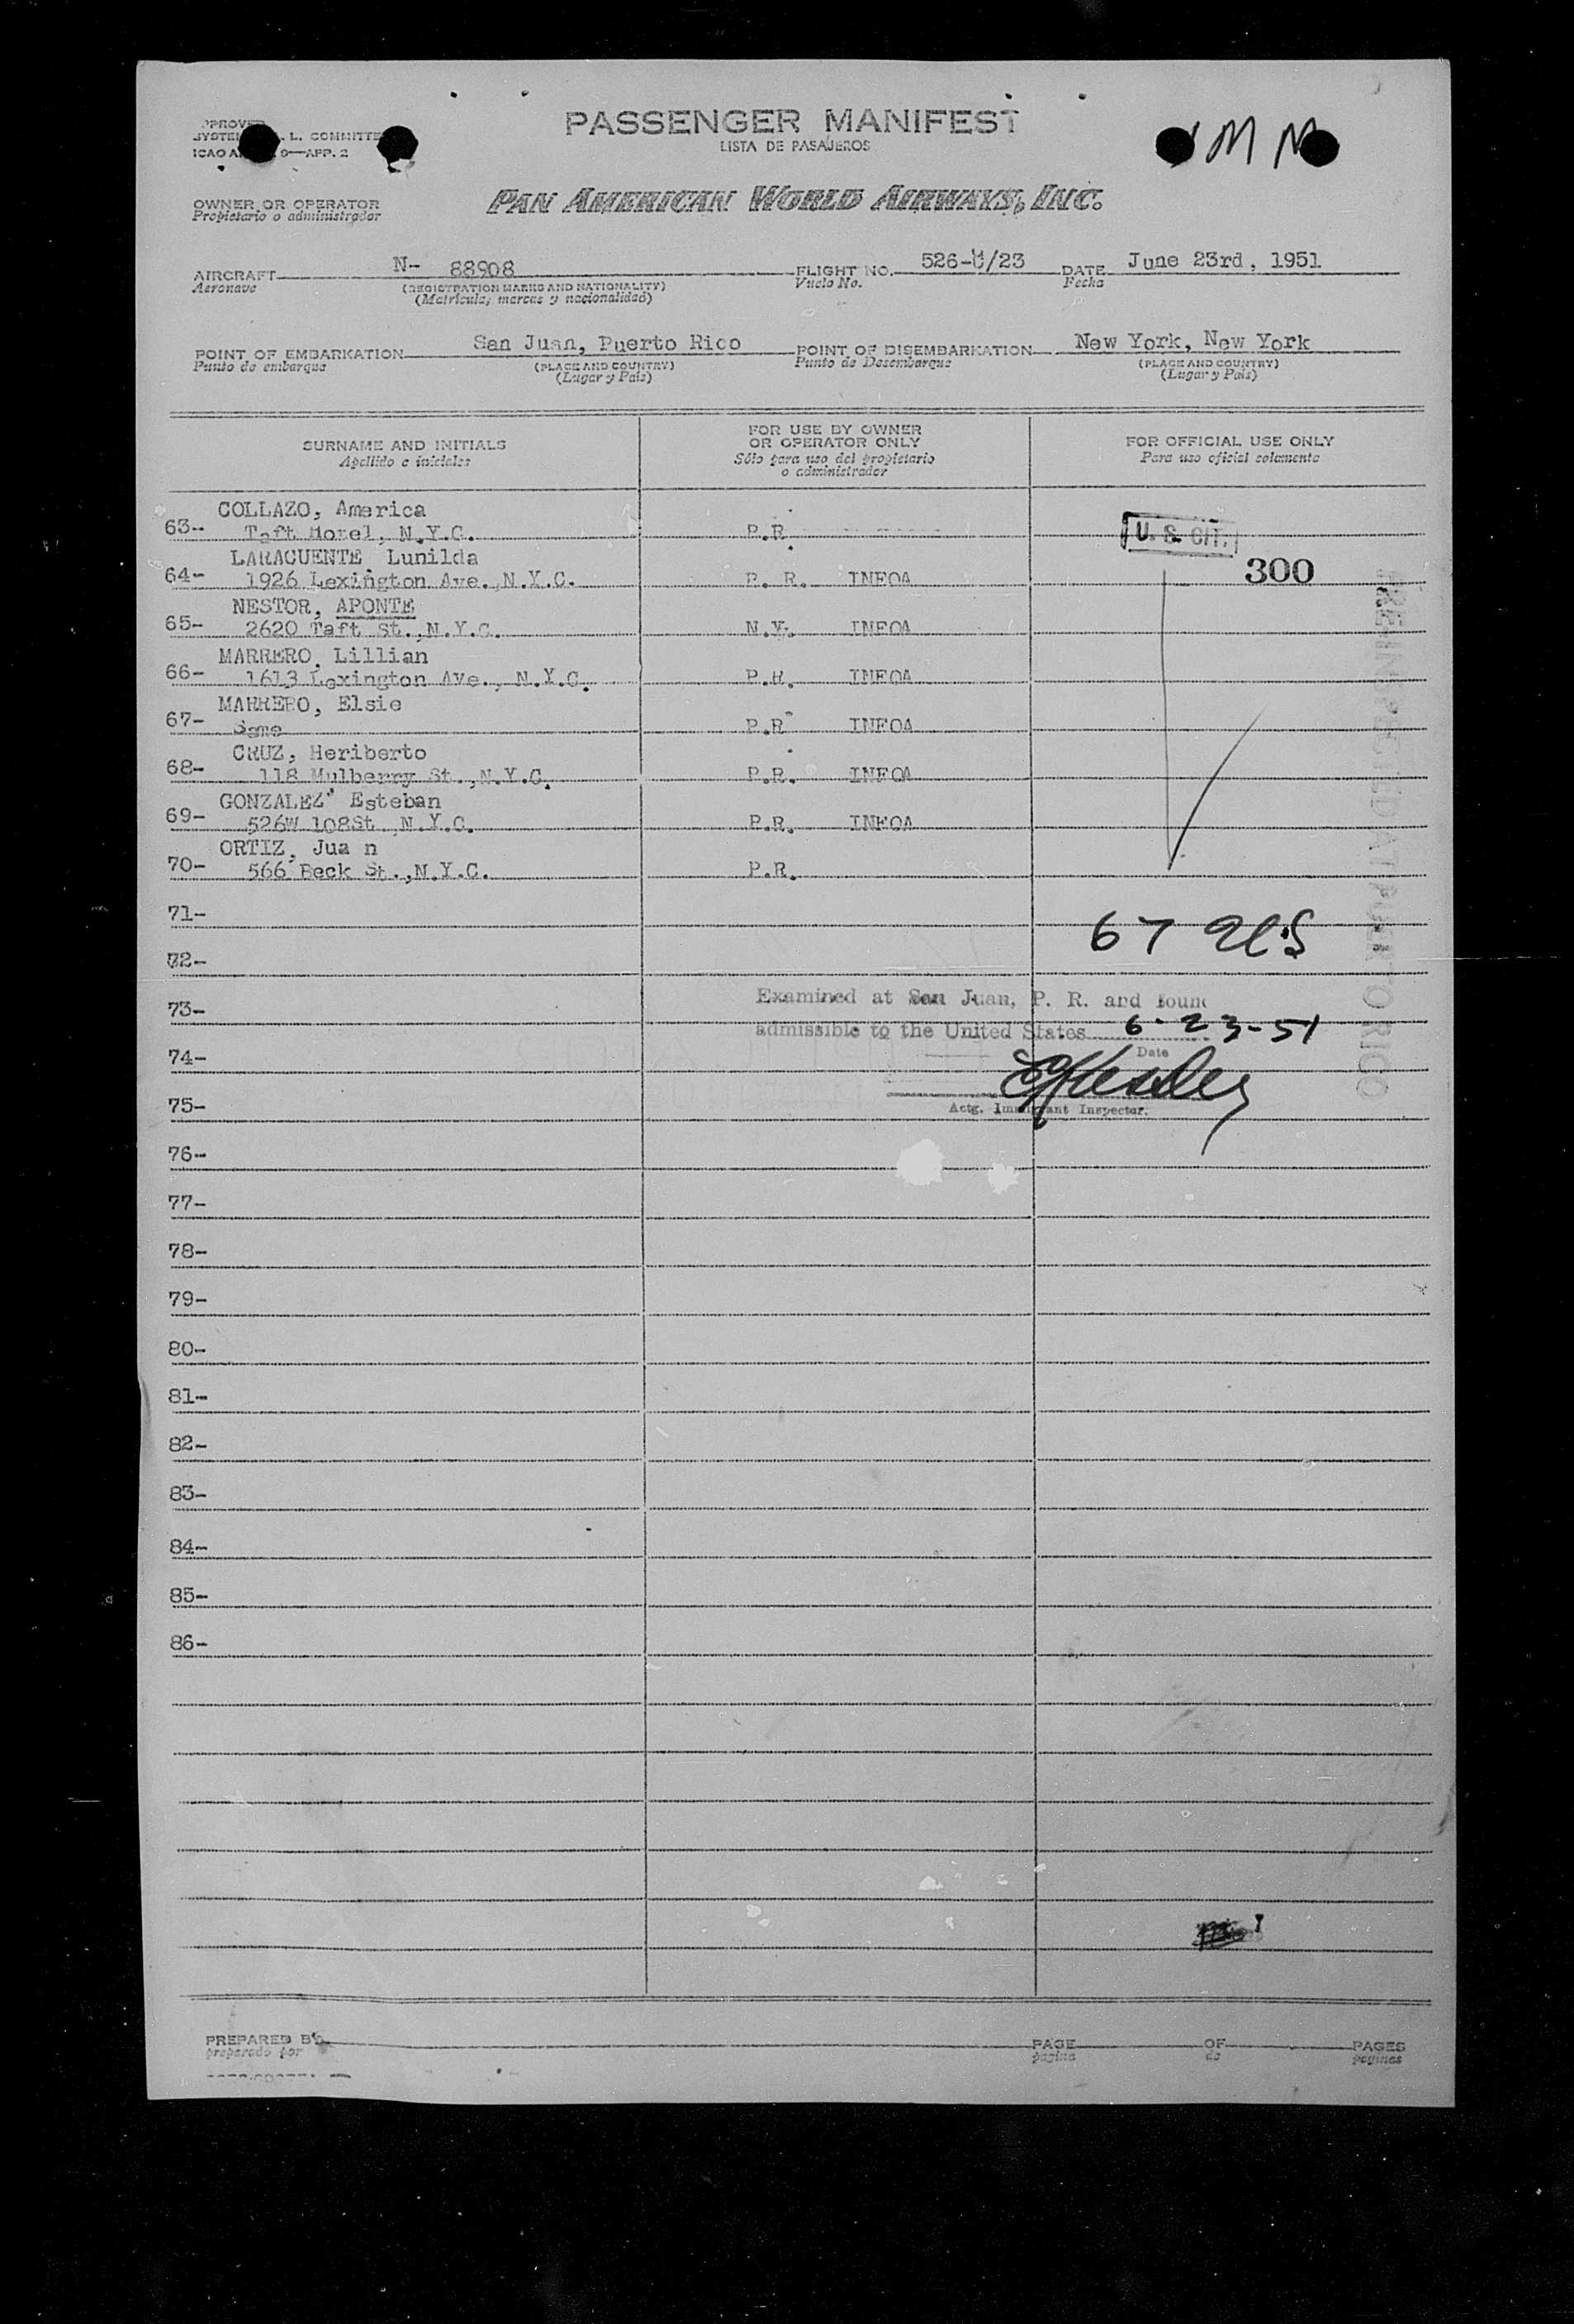 PASSENGER MANIFEST
LISTA DE PASAJEROS
L. COMMITTE
APP. 2
M
OWNER OR OPERATOR
Propietario o administrador
PAN AMERICAN WORLD AIRWAYS, INC.
AIRCRAFT N- 88908 FLIGHT NO. 526-/23 DATE June 23rd, 1951
Aeronave (REGISTRATION MARKS AND NATIONALITY) Vuelo No. Fecha
(Matricula, marcas y nacionalidad)
POINT OF EMBARKATION San Juan, Puerto Rico POINT OF DISEMBARKATION New York, New York
Punto de embarque (PLACE AND COUNTRY) Punto de Desembarque (PLACE AND COUNTRY)
(Lugar y Pais) (Lugar y Pais)
SURNAME AND INITIALS
Apellido e iniciales
FOR USE BY OWNER
OR OPERATOR ONLY
Sólo para uso del propietario
o administrador
FOR OFFICIAL USE ONLY
Para uso oficial solamente
COLLAZO, America
63-- Taft Hotel, N.Y.C. P.R. U. S. CIT.
LARACUENTE, Lunilda
64- 1926 Lexington Ave., N.Y.C. P. R. INFOA 300
NESTOR, APONTE
65- 2620 Taft St., N.Y.C. N.Y. INFOA
MARRERO, Lillian
66- 1613 Lexington Ave., N.Y.C. P.R. INFOA
MARRERO, Elsie
67- Same P.R INFOA
CRUZ, Heriberto
68- 118 Mulberry St., N.Y.C. P.R. INFOA
GONZALEZ, Esteban
69- 526W 108St., N.Y.C. P.R. INFOA
ORTIZ, Jua n
70- 566 Beck St., N.Y.C. P.R.
PRE-INSPECTED AT PUERTO RICO
71- 67 US
72-
73- Examined at San Juan, P. R. and found
admissible to the United States 6-23-51
74- Date
75- Actg. Immigrant Inspector.
76-
77-
78-
79-
80-
81-
82-
83-
84-
85-
86-
PREPARED BY PAGE OF PAGES
preparado por pagina de paginas